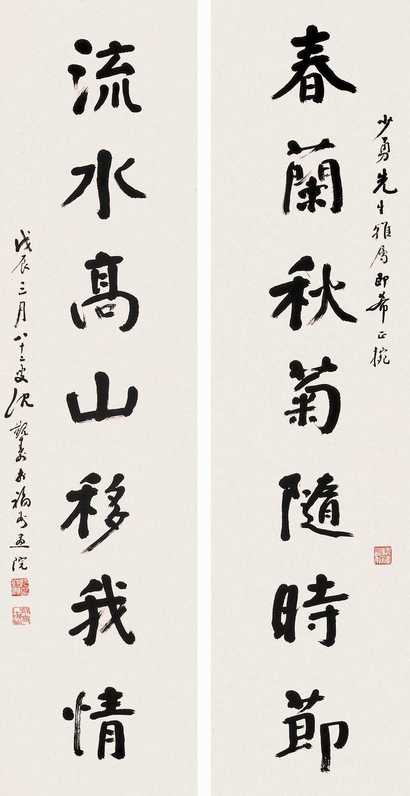 少勇先生雅属即希正腕
春蘭秋菊隨時節
流水高山移我情
戊辰三月八十二叟沈覲壽於福州畫院